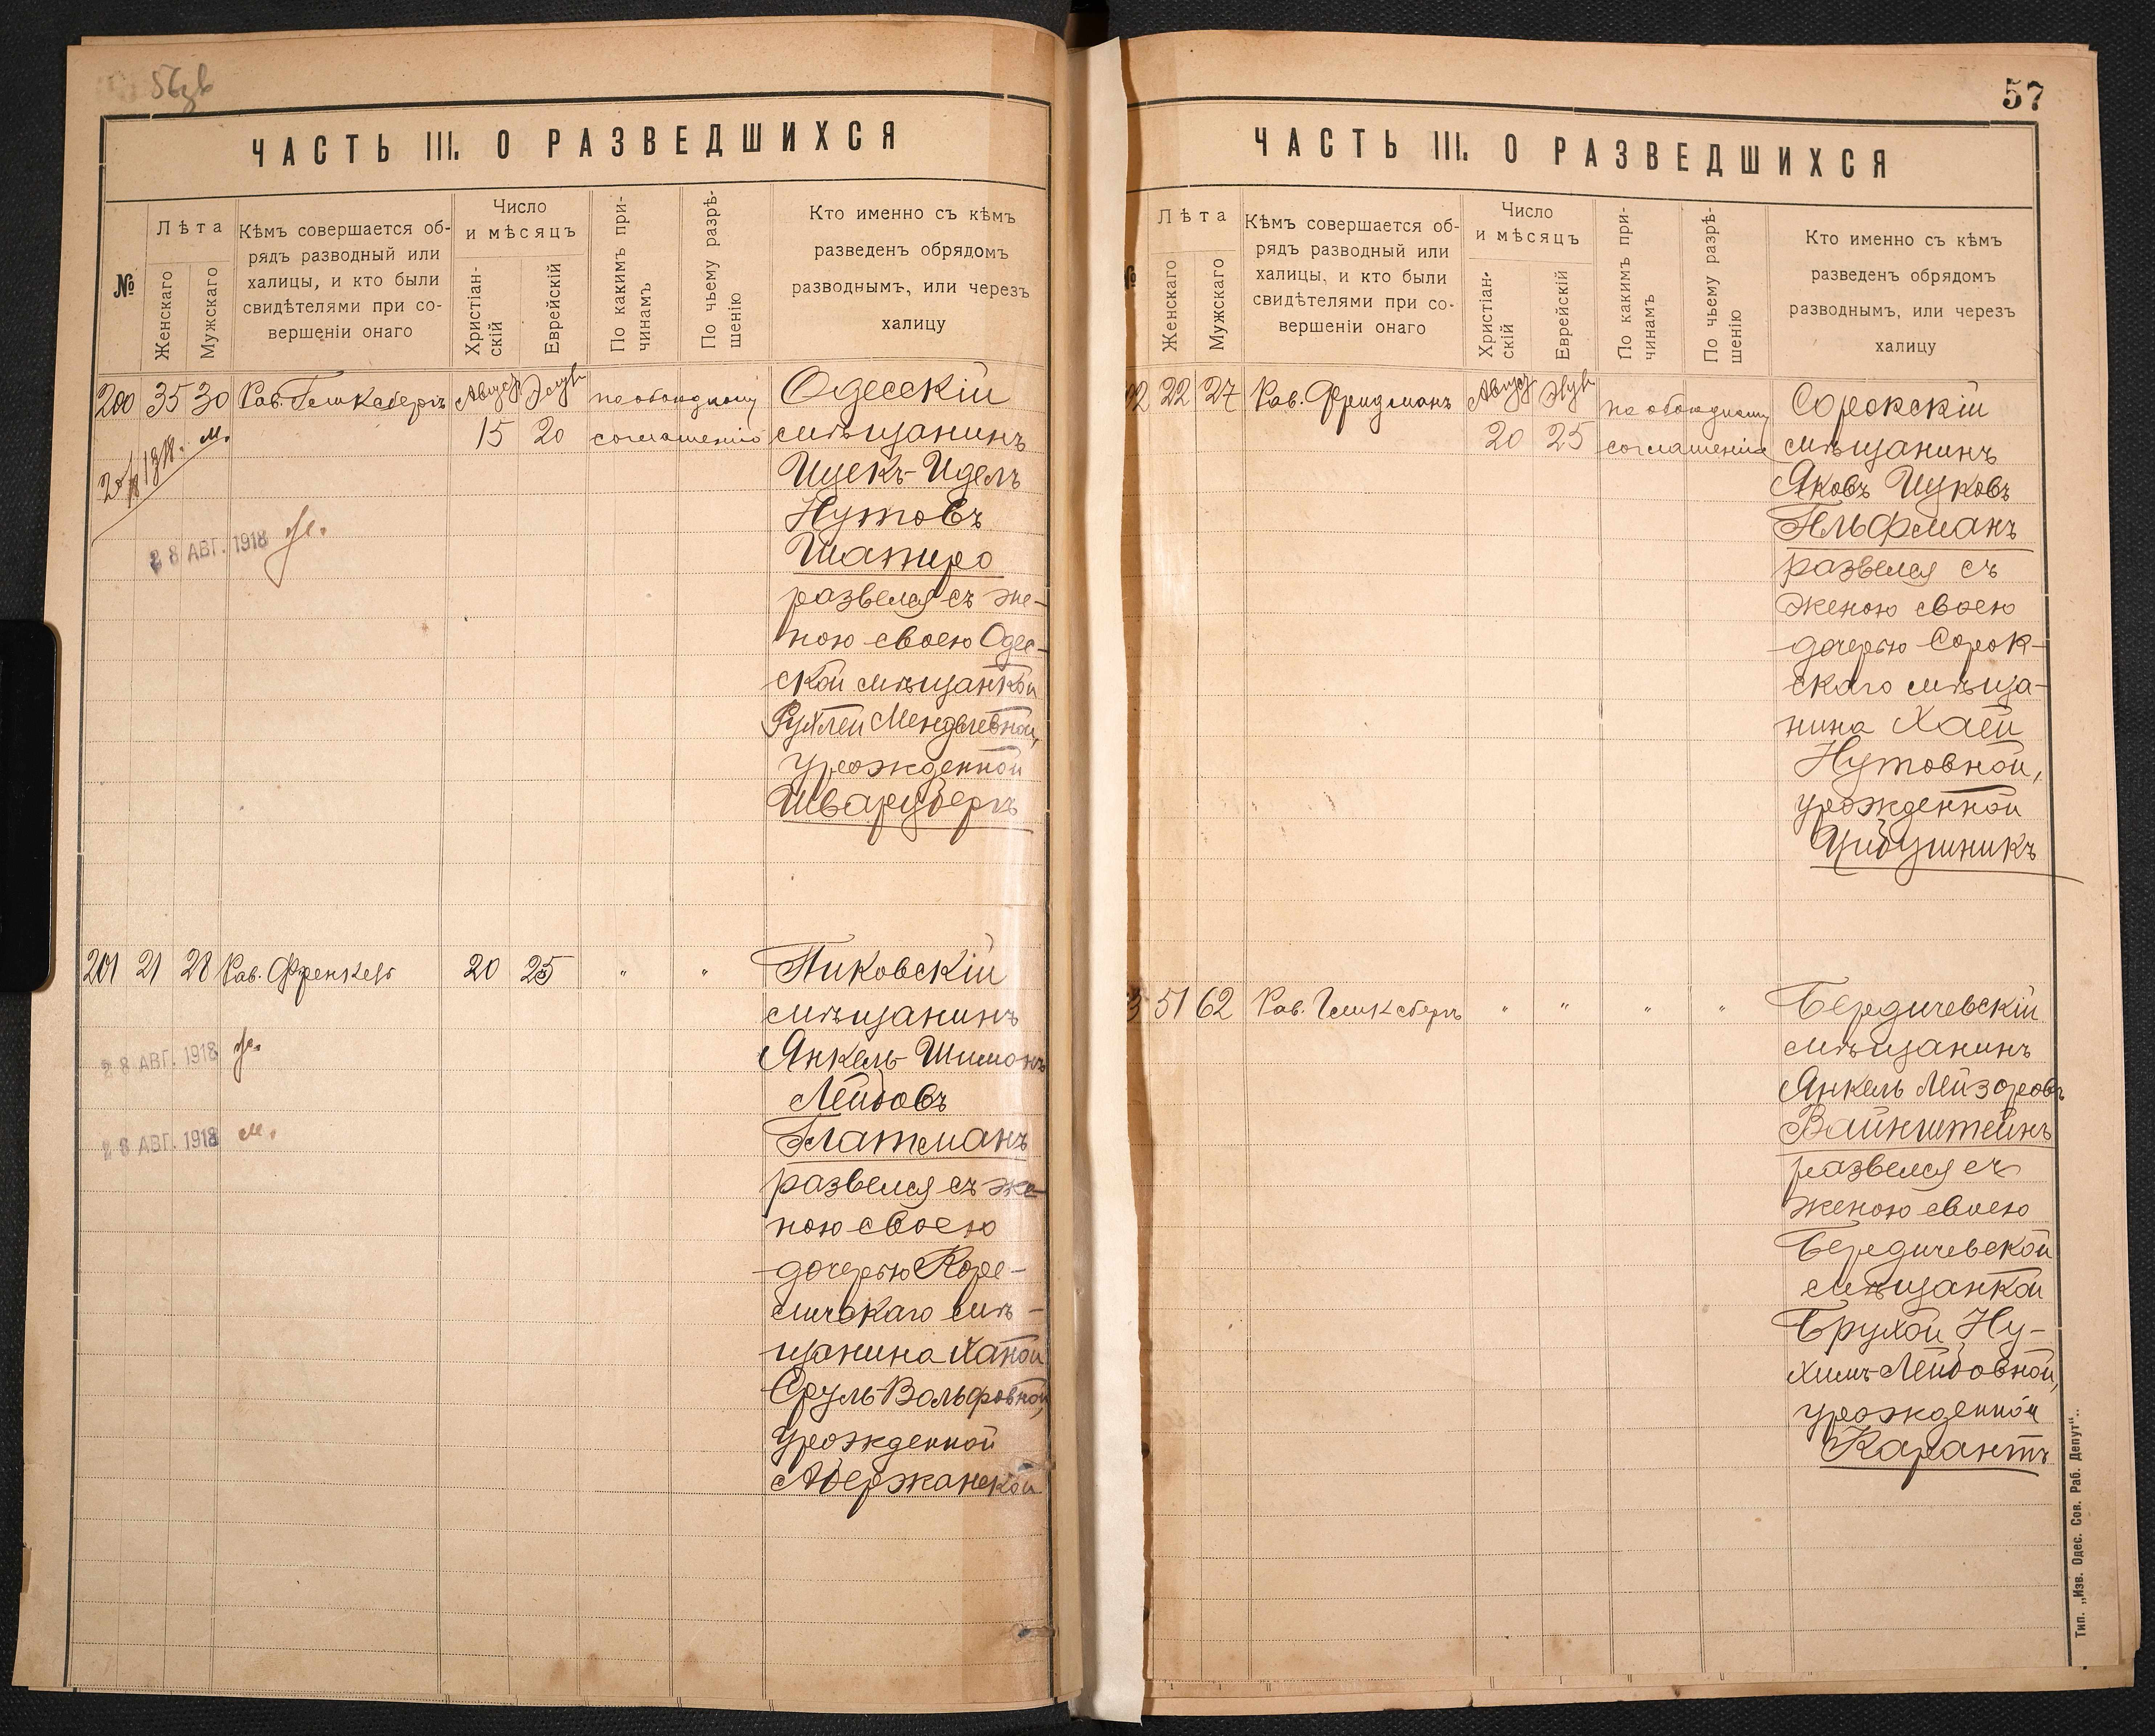 56зв
ЧАСТЬ III. О РАЗВЕДШИХСЯ
№
Лѣта
Женскаго
Мужскаго
Кѣмъ совершается об-
рядъ разводный или
халицы, и кто были
свидѣтелями при со-
вершеніи онаго
Число
и мѣсяцъ
Христіан-
скій
Еврейскій
По какимъ при-
чинамъ
По чьему разрѣ-
шенію
Кто именно съ кѣмъ
разведенъ обрядомъ
разводнымъ, или черезъ
халицу
200 35 30 Рав. Гликсбергъ Август Элулъ по обоюдному Одесскій
15 20 соглашенію мѣщанинъ
Ицекъ-Идель
Нутовъ
28 АВГ. 1918 ж.
Шапиро
развелся съ же-
ною своею Одес-
ской мѣщанкой
Рухлей Менделевной,
урожденной
Шварцбергъ
201 21 28 Рав. Френкель 20 25 " " Пиковскій
мѣщанинъ
28 АВГ. 1918 ж.
Янкель-Шимонъ
Лейбовъ
28 АВГ. 1918 м.
Глатманъ
развелся съ же-
ною своею
дочерью Коре-
личскаго мѣ-
щанина Ханой
Сруль-Вольфовной,
урожденной
Абержанской
57
ЧАСТЬ III. О РАЗВЕДШИХСЯ
№
Лѣта
Женскаго
Мужскаго
Кѣмъ совершается об-
рядъ разводный или
халицы, и кто были
свидѣтелями при со-
вершеніи онаго
Число
и мѣсяцъ
Христіан-
скій
Еврейскій
По какимъ при-
чинамъ
По чьему разрѣ-
шенію
Кто именно съ кѣмъ
разведенъ обрядомъ
разводнымъ, или черезъ
халицу
2 22 27 Рав. Фридманъ Август Элулъ по обоюдному Сорокскій
20 25 соглашенію мѣщанинъ
Яковъ Ицковъ
Гельфманъ
развелся съ
женою своею
дочерью Сорок-
скаго мѣща-
нина Хаей
Нутовной,
урожденной
Цибушникъ
3 51 62 Рав. Гликсбергъ " " " " Бердичевскій
мѣщанинъ
Янкель Лейзоровъ
Вайнштейнъ
развелся съ
женою своею
Бердичевской
мѣщанкой
Брухой Ну-
химъ-Лейбовной,
урожденной
Карантъ
Тип. „Изв. Одес. Сов. Раб. Депут“.